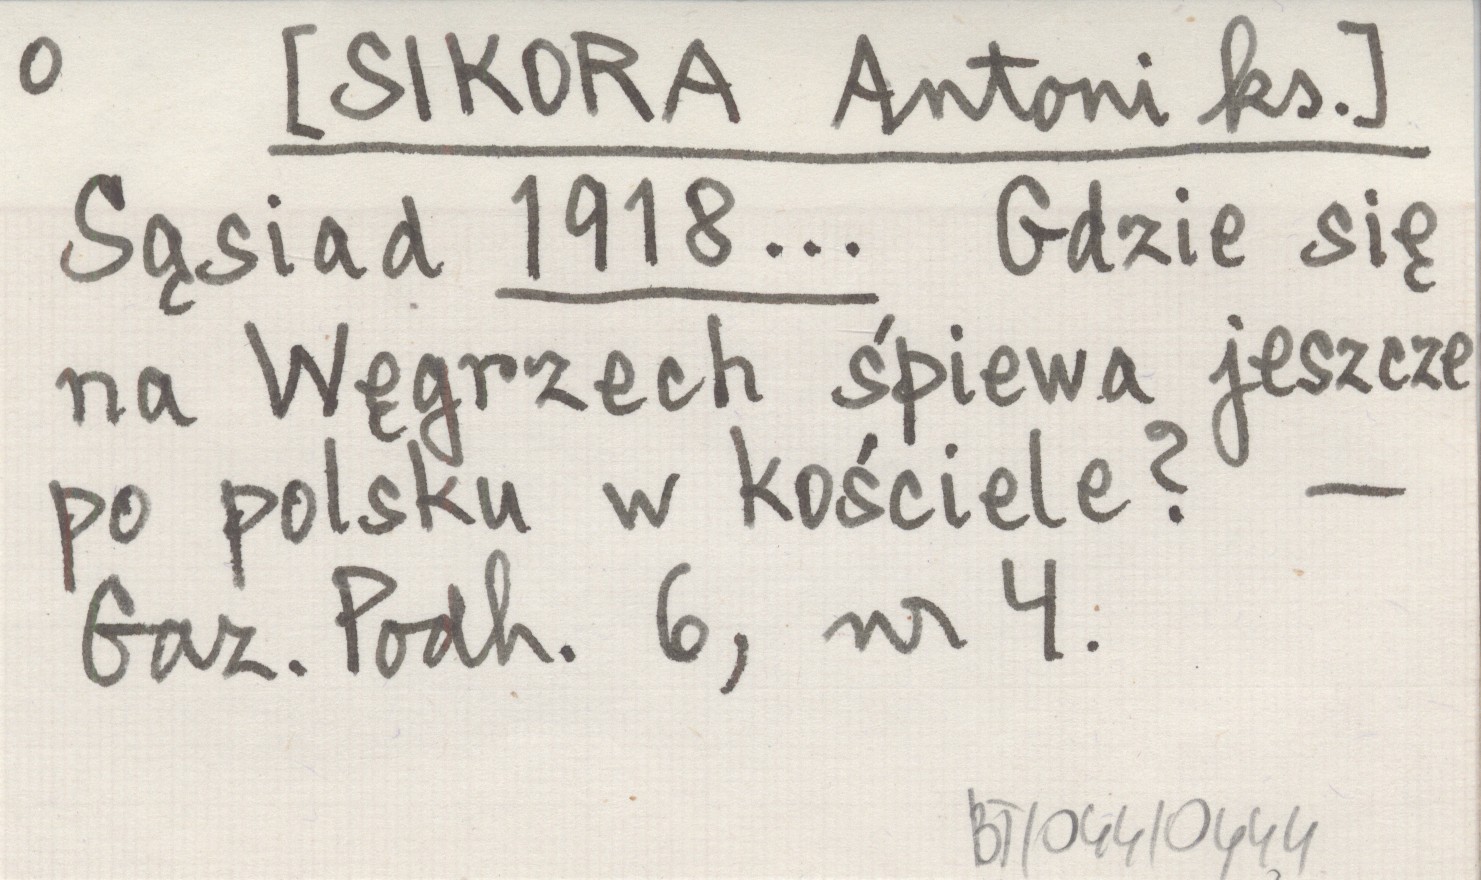 o [SIKORA Antoni ks.]
Sąsiad 1918... Gdzie się
na Węgrzech śpiewa jeszcze
po polsku w kościele? —
Gaz. Podh. 6, nr 4.
BT/044/0444